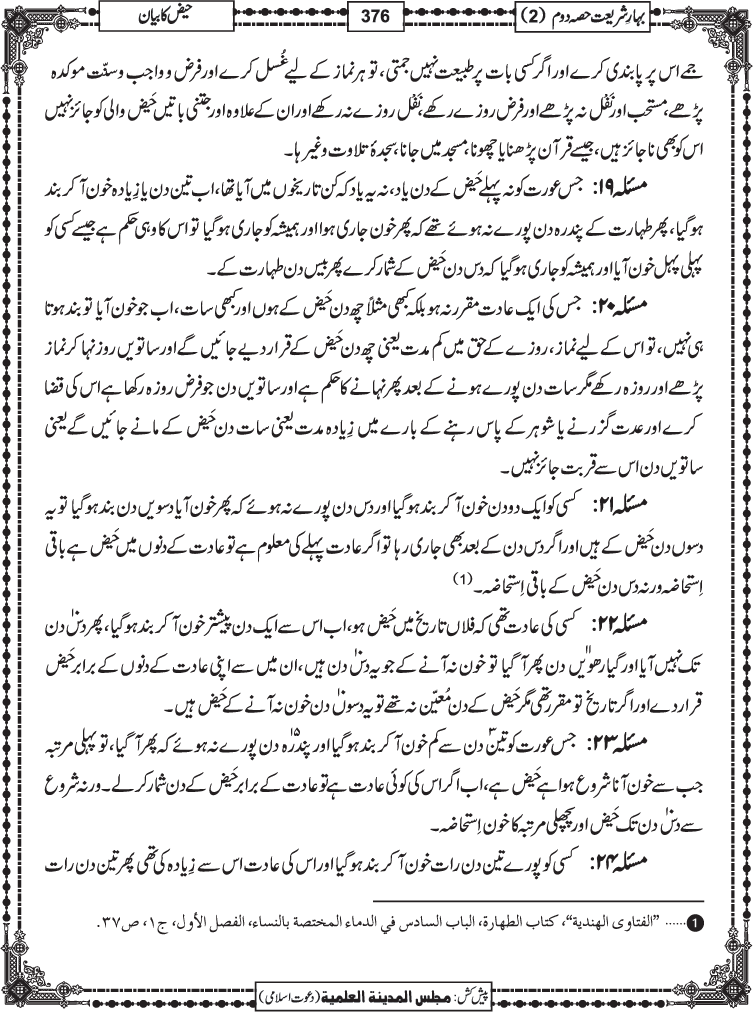 بہارشریعت حصہ دوم (2)
376
حیض کا بیان
جمے اس پر پابندی کرے اور اگر کسی بات پر طبیعت نہیں جمتی، تو ہر نماز کے لیے غُسل کرے اور فرض و واجب و سنّت موکدہ
پڑھے، مستحب اور نَفْل نہ پڑھے اور فرض روزے رکھے، نَفْل روزے نہ رکھے اور ان کے علاوہ اور جتنی باتیں حَیض والی کو جائز نہیں
اس کو بھی ناجائز ہیں، جیسے قرآن پڑھنا یا چھونا، مسجد میں جانا، سجدۂ تلاوت وغیرہا۔
مسئلہ ۱۹: جس عورت کو نہ پہلے حَیض کے دن یاد، نہ یہ یاد کہ کن تاریخوں میں آیا تھا، اب تین دن یا زِیادہ خون آ کر بند
ہوگیا، پھر طہارت کے پندرہ دن پورے نہ ہوئے تھے کہ پھر خون جاری ہوا اور ہمیشہ کو جاری ہوگیا تو اس کا وہی حکم ہے جیسے کسی کو
پہلی پہل خون آیا اور ہمیشہ کو جاری ہوگیا کہ دس دن حَیض کے شمار کرے پھر بیس دن طہارت کے۔
مسئلہ ۲۰: جس کی ایک عادت مقرر نہ ہو بلکہ کبھی مثلاً چھ دن حَیض کے ہوں اور کبھی سات، اب جو خون آیا تو بند ہوتا
ہی نہیں، تو اس کے لیے نماز، روزے کے حق میں کم مدت یعنی چھ دن حَیض کے قرار دیے جائیں گے اور ساتویں روز نہا کر نماز
پڑھے اور روزہ رکھے مگر سات دن پورے ہونے کے بعد پھر نہانے کا حکم ہے اور ساتویں دن جو فرض روزہ رکھا ہے اس کی قضا
کرے اور عدت گزرنے یا شوہر کے پاس رہنے کے بارے میں زِیادہ مدت یعنی سات دن حَیض کے مانے جائیں گے یعنی
ساتویں دن اس سے قربت جائز نہیں۔
مسئلہ ۲۱: کسی کو ایک دو دن خون آ کر بند ہوگیا اور دس دن پورے نہ ہوئے کہ پھر خون آیا دسویں دن بند ہوگیا تو یہ
دسوں دن حَیض کے ہیں اور اگر دس دن کے بعد بھی جاری رہا تو اگر عادت پہلے کی معلوم ہے تو عادت کے دنوں میں حَیض ہے باقی
اِستحاضہ ورنہ دس دن حَیض کے باقی اِستحاضہ۔ (1)
مسئلہ ۲۲: کسی کی عادت تھی کہ فلاں تاریخ میں حَیض ہو، اب اس سے ایک دن پیشتر خون آ کر بند ہوگیا، پھر دس۱۰ دن
تک نہیں آیا اور گیارھویں۱۱ دن پھر آ گیا تو خون نہ آنے کے جو یہ دس۱۰ دن ہیں، ان میں سے اپنی عادت کے دنوں کے برابر حَیض
قرار دے اور اگر تاریخ تو مقرر تھی مگر حَیض کے دن مُعیّن نہ تھے تو یہ دسوں۱۰ دن خون نہ آنے کے حَیض ہیں۔
مسئلہ ۲۳: جس عورت کو تین۳ دن سے کم خون آ کر بند ہوگیا اور پندرہ۱۵ دن پورے نہ ہوئے کہ پھر آ گیا، تو پہلی مرتبہ
جب سے خون آنا شروع ہوا ہے حَیض ہے، اب اگر اس کی کوئی عادت ہے تو عادت کے برابر حَیض کے دن شمار کر لے۔ ورنہ شروع
سے دس۱۰ دن تک حَیض اور پچھلی مرتبہ کا خون اِستحاضہ۔
مسئلہ ۲۴: کسی کو پورے تین دن رات خون آ کر بند ہوگیا اور اس کی عادت اس سے زِیادہ کی تھی پھر تین دن رات
1 ...... "الفتاوی الهندية"، کتاب الطهارة، الباب السادس في الدماء المختصة بالنساء، الفصل الأول، ج۱، ص۳۷.
پیش کش: مجلس المدینة العلمیة (دعوتِ اسلامی)